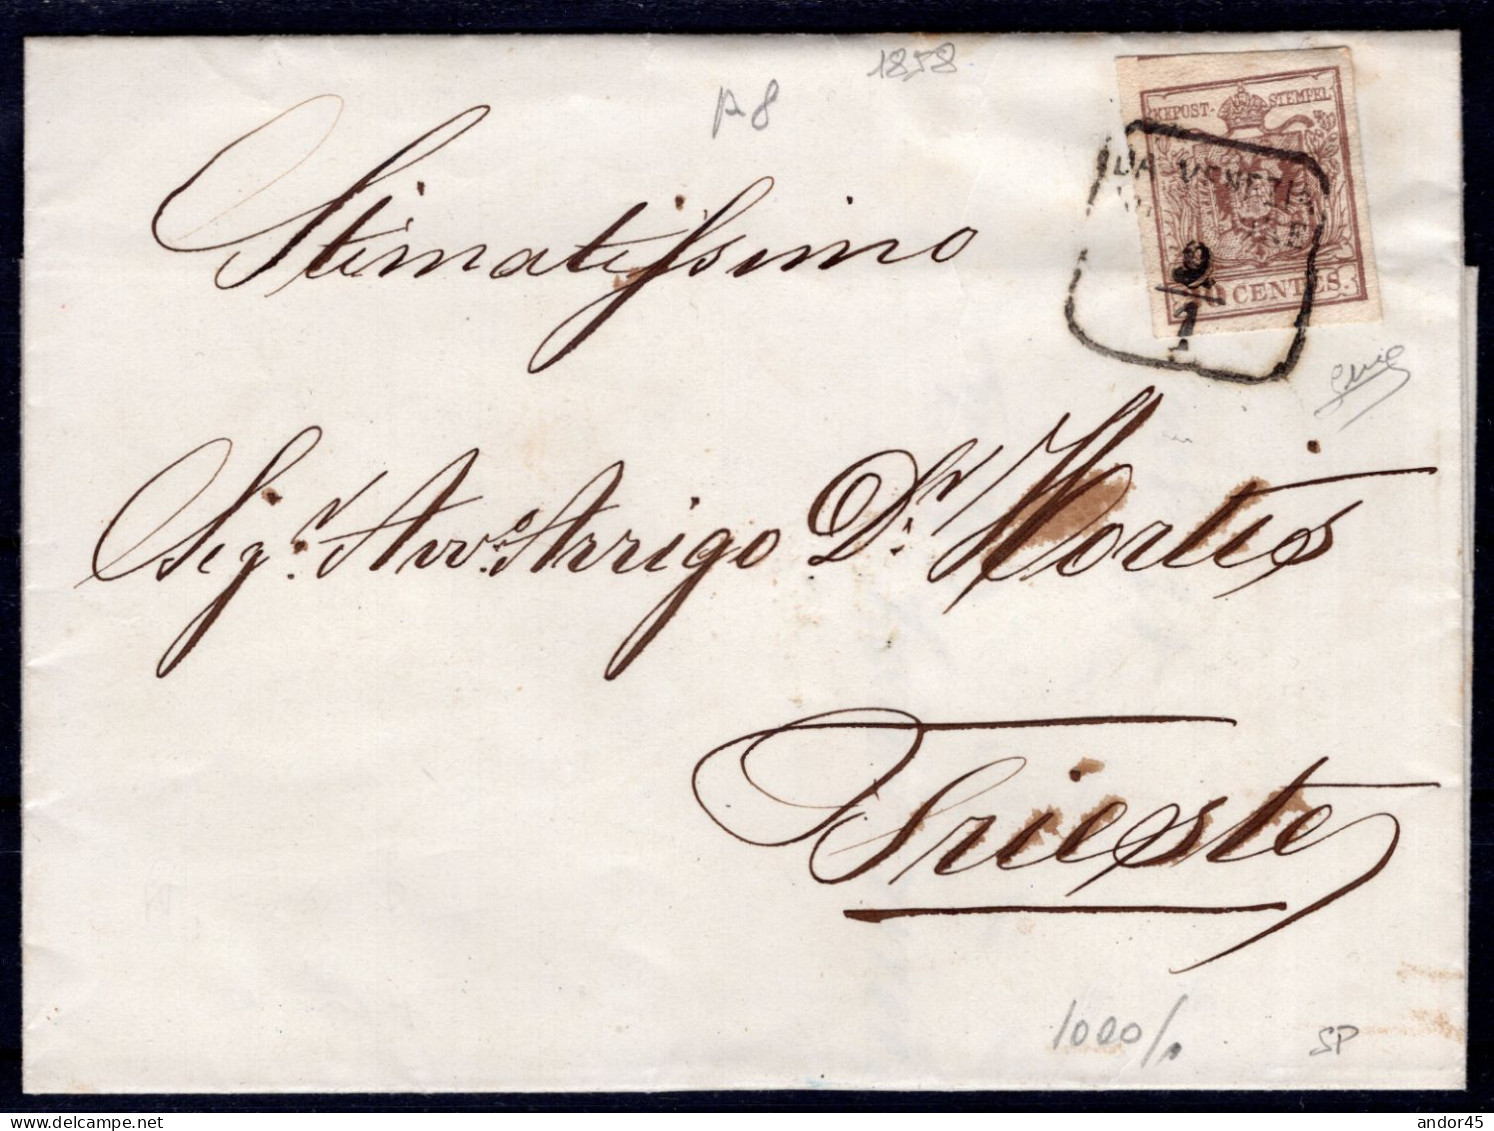 1858
KKPOST-STEMPEL
DA VENEZIA
9
1
CENTES.
Stimatissimo
Sigr. Avvo. Arrigo Dr. Hortis
Trieste
1000/.
SP
andor45